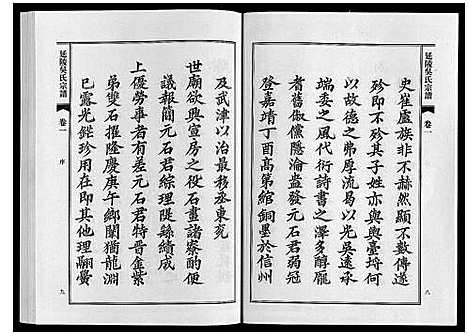 延陵吳氏宗譜
卷一
八
史崔盧族非不赫然顯不數傳遂
殄即不殄其子姓亦與輿臺埒何
以故德之弗厚流易以光吳遠承
端委之風代衍詩書之澤多醇龐
耆舊俶儻隱淪益發元石君弱冠
登嘉靖丁酉高第綰銅墨於信州
及武津以治最移丞東兖
世廟欲興宣房之役石畫諸寮酌便
議報簡元石君綜理隄繇績成
上優勞事者有差元石君特晉金紫
弟雙石擢隆慶庚午鄉闈猶龍淵
已露光鋩珍用在即其他理翮鬢
延陵吳氏宗譜
卷一
序
九